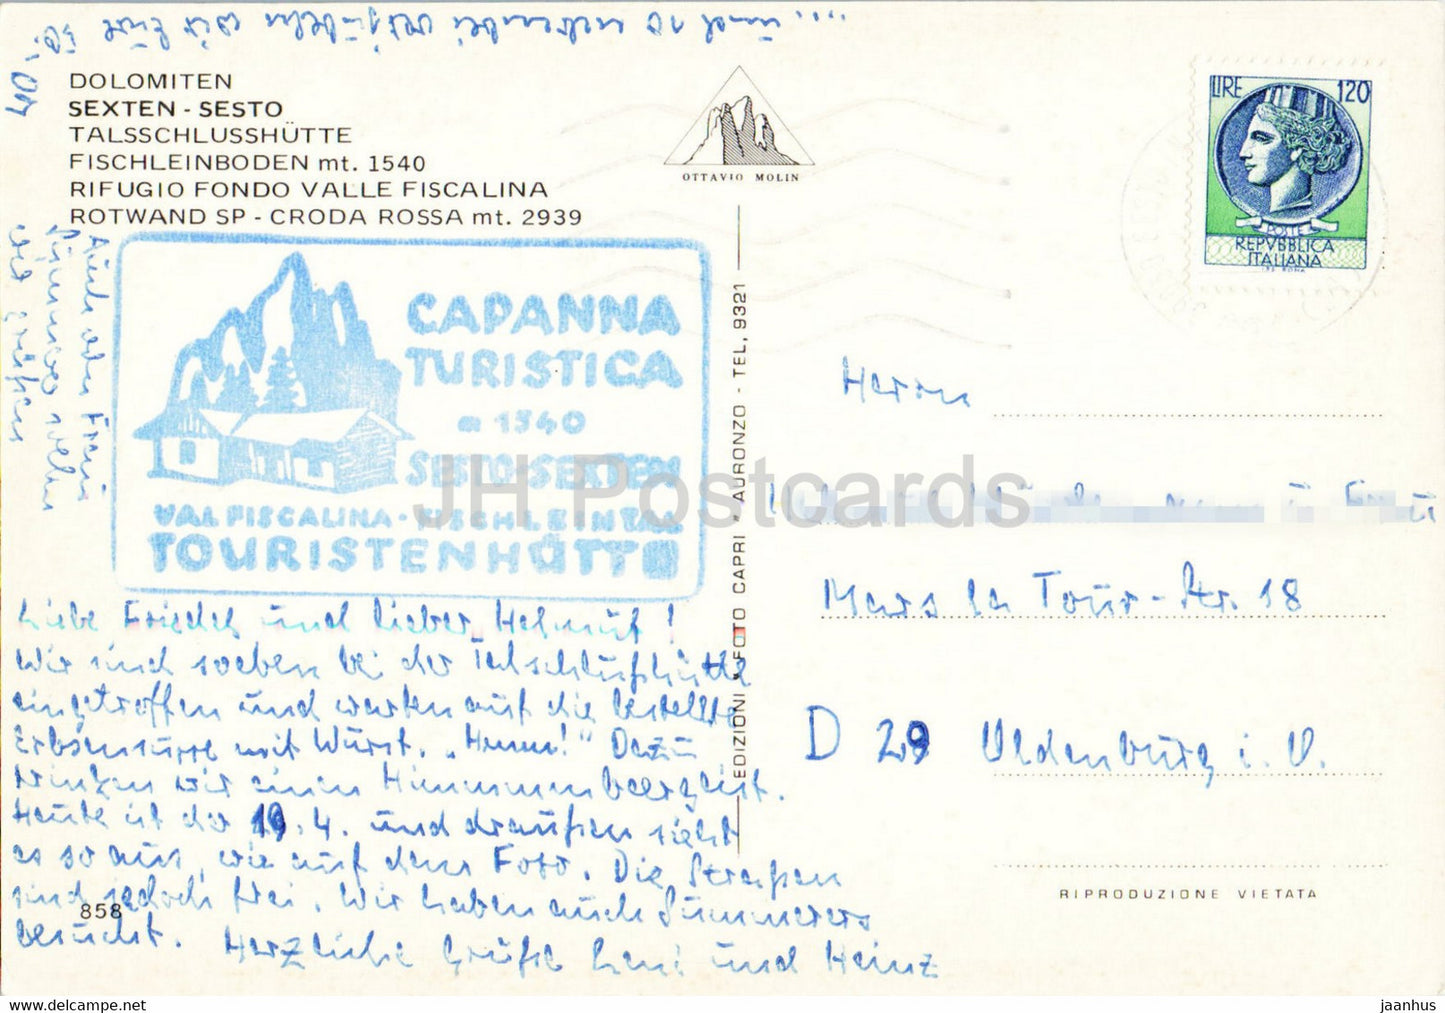 .... und so nebenbei verjubeln wir Eure 50,- DM
DOLOMITEN
SEXTEN - SESTO
TALSSCHLUSSHÜTTE
FISCHLEINBODEN mt. 1540
RIFUGIO FONDO VALLE FISCALINA
ROTWAND SP - CRODA ROSSA mt. 2939
OTTAVIO MOLIN
LIRE 120
POSTE
REPVBBLICA
ITALIANA
Auch von Frau
Summerer sollen
wir grüßen
CAPANNA
TURISTICA
m 1540
SESTO-SEXTEN
VAL FISCALINA - FISCHLEINTAL
TOURISTENHÜTTE
EDIZIONI * FOTO CAPRI * AURONZO - TEL. 9321
JH Postcards
Herrn
Mars la Tour-Str. 18
D 29 Oldenburg i. O.
RIPRODUZIONE VIETATA
Liebe Friedel und lieber Helmut!
Wir sind soeben bei der Talschlußhütte
eingetroffen und warten auf die bestellte
Erbsensuppe mit Wurst. „Hmm!" Dazu
trinken wir einen Himmbeergeist.
Heute ist der 19.4. und draußen sieht
es so aus, wie auf dem Foto. Die Straßen
sind jedoch frei. Wir haben auch Summerers
besucht. Herzliche Grüße Leni und Heinz
858
jaanhus @ delcampe.net